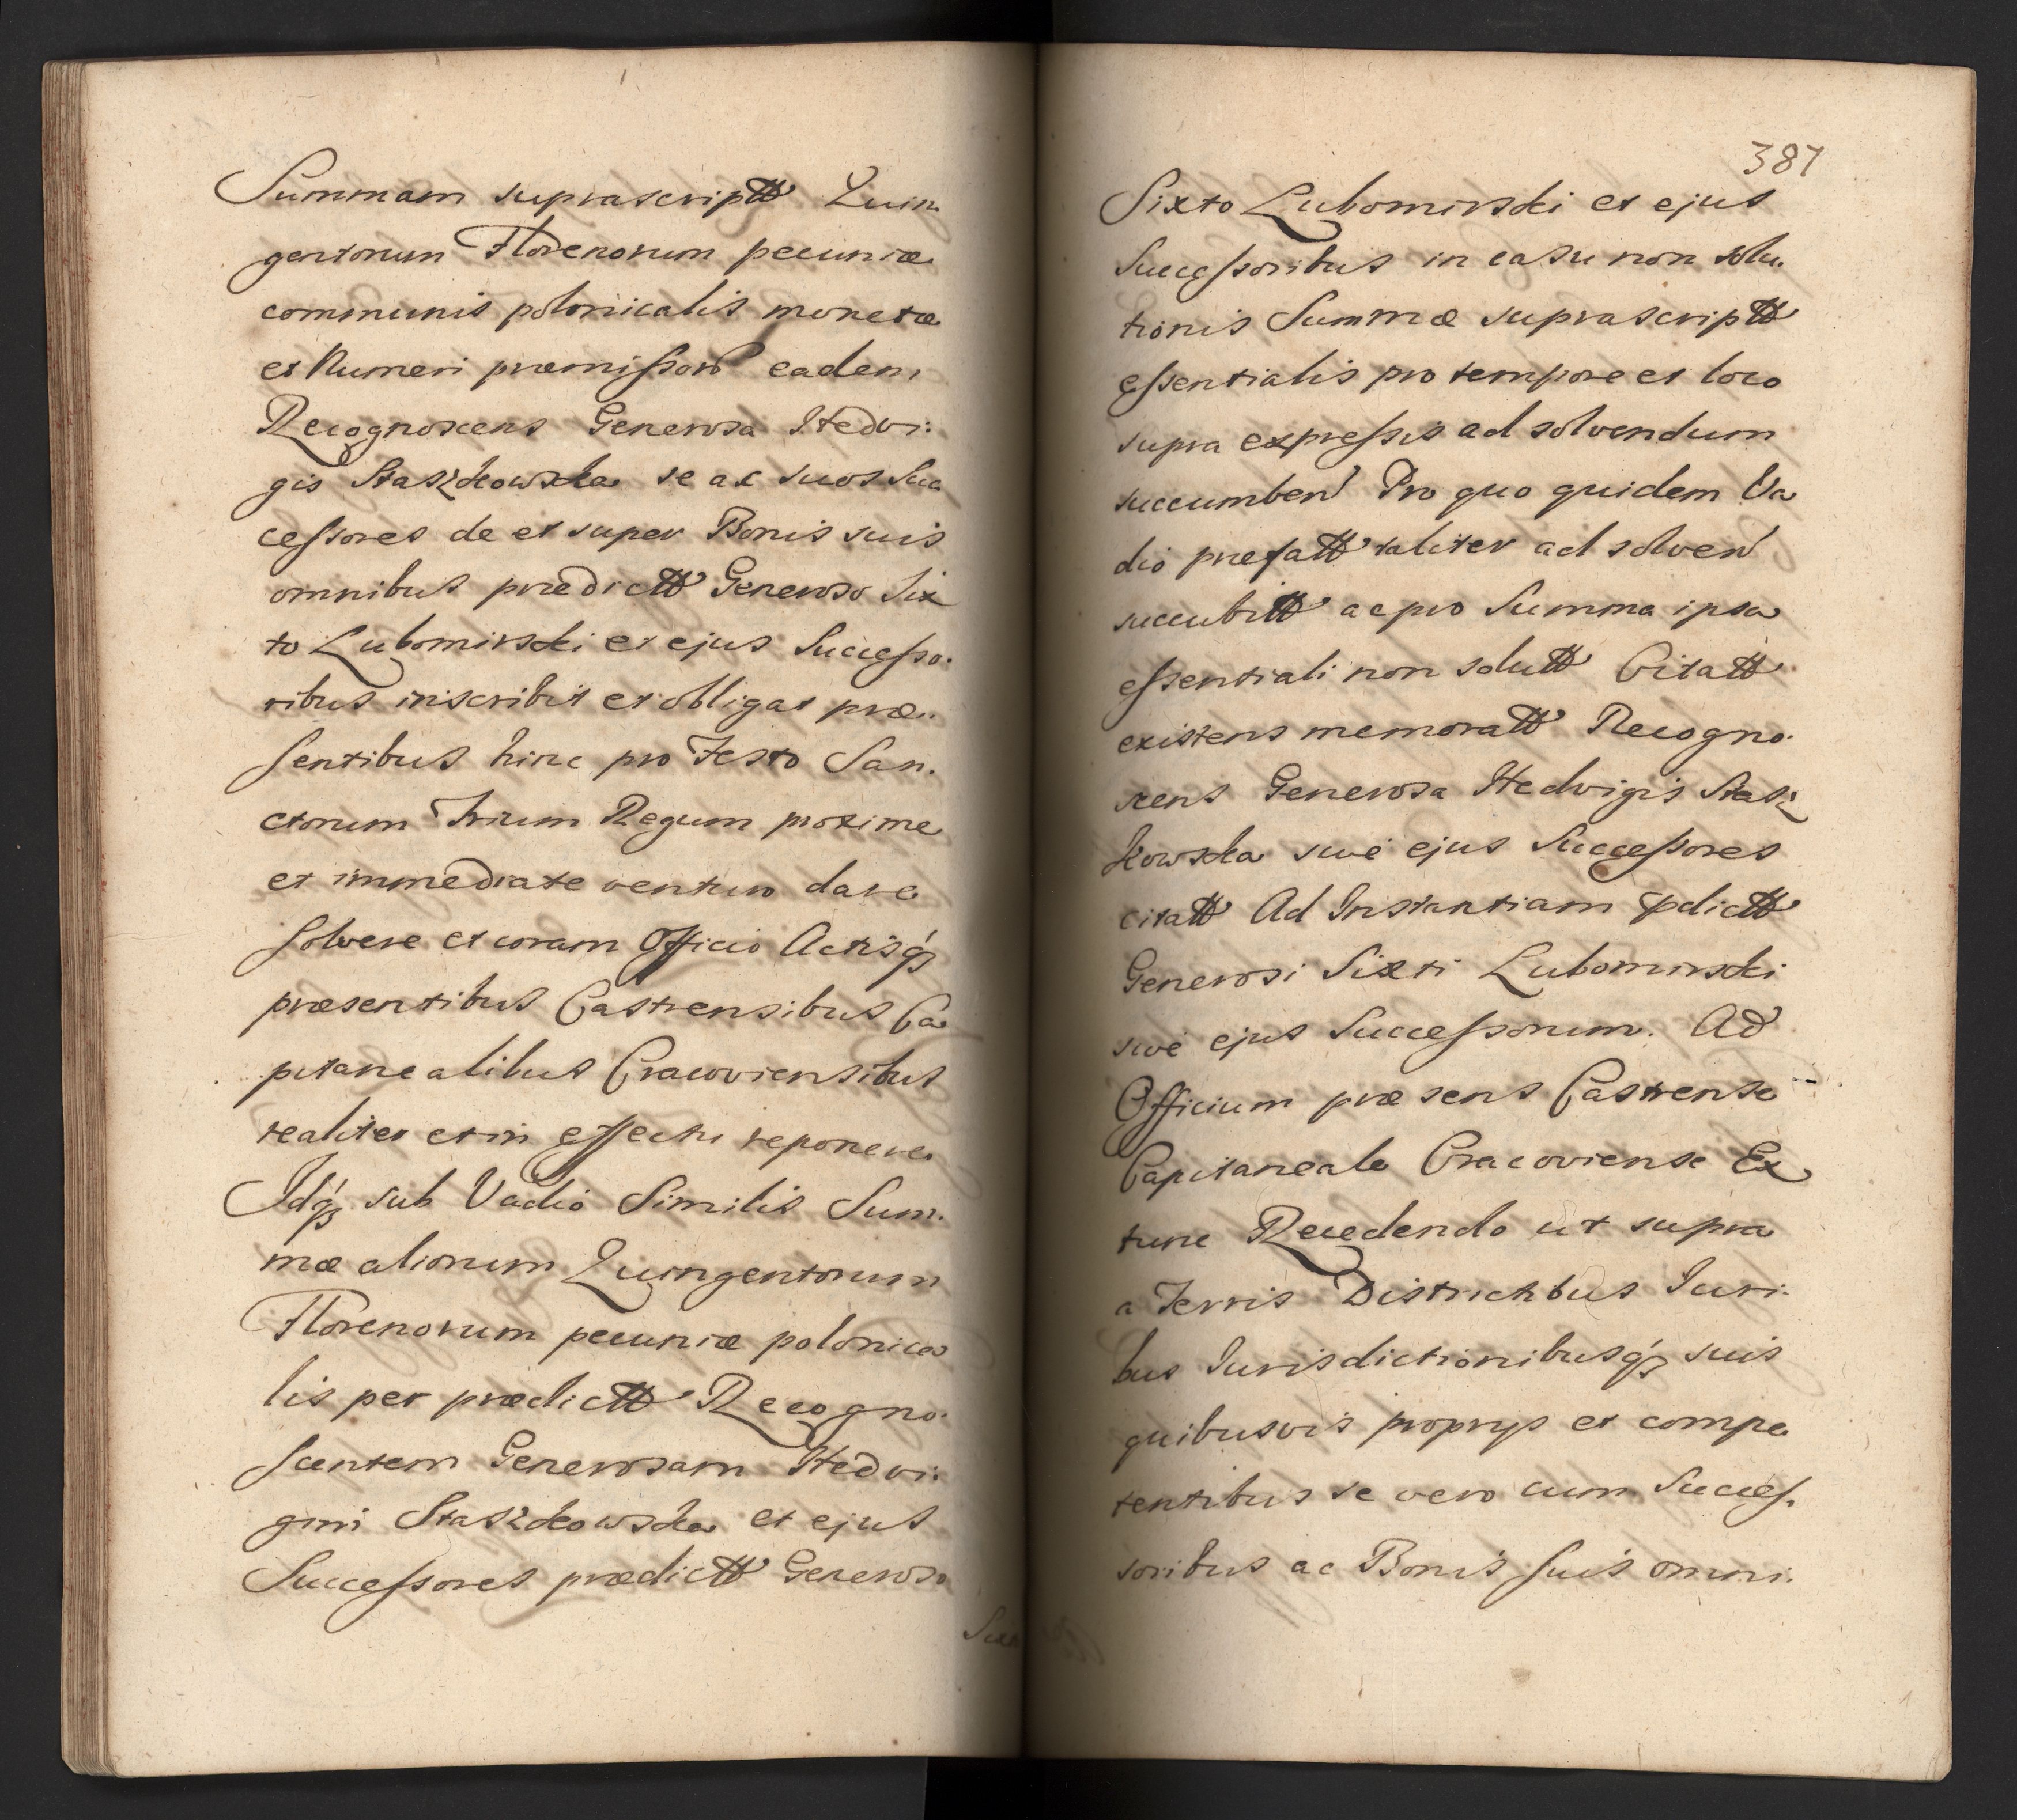 Summam suprascriptt Quin
gentorum Florenorum pecuniæ
communis polonicalis monetæ
et Numeri præmissor eadem
Recognoscens Generosa Hedvi:
gis Staszkowska se ac suos Suc
cessores de et super Bonis suis
omnibus prædictt Generoso Six
to Lubomirski et ejus Successo.
ribus inscribit et obligat præ..
sentibus hinc pro Festo San.
ctorum Trium Regum proxime
et immediate venturo dare
solvere et coram Officio Actisq́ꝫ
præsentibus Castrensibus Ca
pitanealibus Cracoviensibus
realiter et in effectu reponere
Idq́ꝫ sub Vadio Similis Sum.
mæ aliorum Quingentorum
Florenorum pecuniæ polonica
lis per prædictt Recogno.
scentem Generosam Hedvi:
gim Staszkowska et ejus
Successores prædictt Generoso
Sixt
387
Sixto Lubomirski et ejus
Successoribus in casu non solu.
tionis Summæ suprascriptt
essentialis pro tempore et loco
supra expressis ad solvendum
succumben Pro quo quidem Va
dio præfatt taliter ad solven
succubitt ac pro Summa ipsa
essentiali non solutt Citatt
existens memoratt Recogno.
scens Generosa Hedvigis Stasz
kowska sive ejus Successores
citatt Ad Instantiam pdictt
Generosi Sixti Lubomirski
sive ejus Successorum. Ad
Officium præsens Castrense
Capitaneale Cracoviense Ex
tunc Recedendo ut supra
a Terris Districtibus Juri.
bus Jurisdictionibusq́ꝫ suis
quibusvis proprys et compe
tentibus se vero cum Succes.
soribus ac Bonis suis omni.